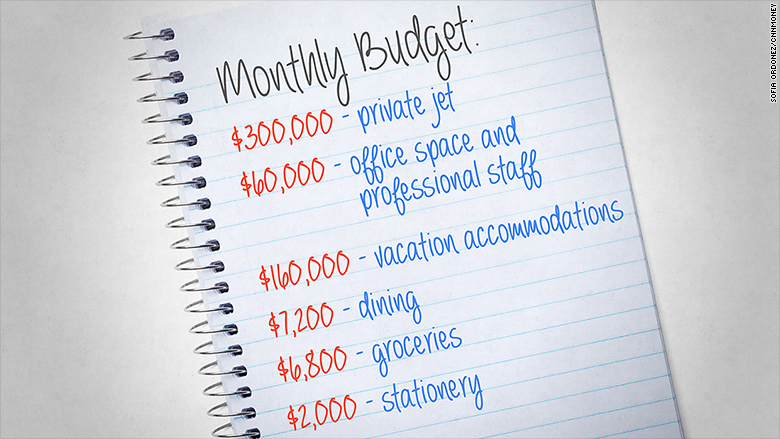 Monthly Budget:
$300,000 - private jet
$60,000 - office space and
professional staff
$160,000 - vacation accommodations
$7,200 - dining
$6,800 - groceries
$2,000 - stationery
SOFIA ORDONEZ/CNNMONEY